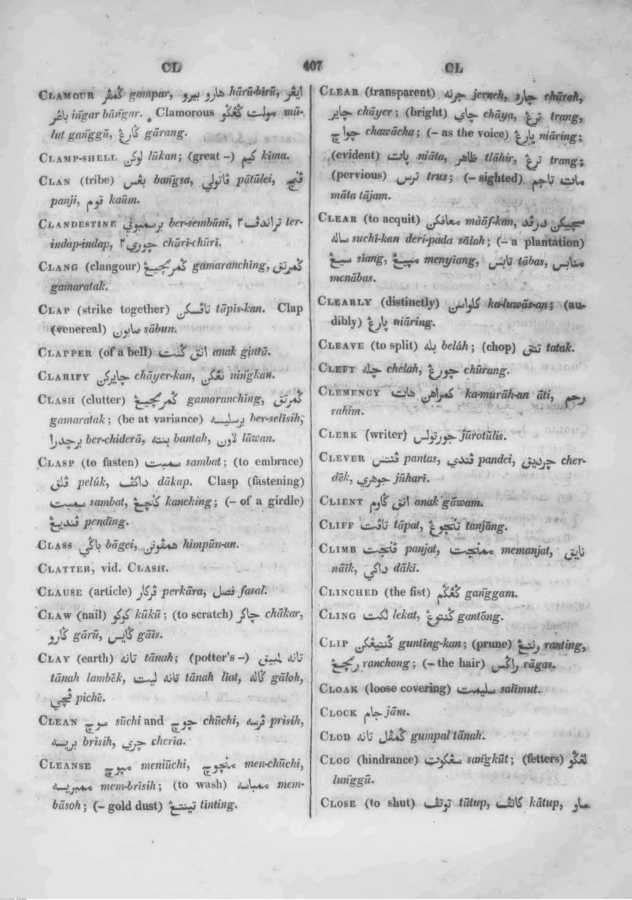 CL 407 CL
CLAMOUR ڬمڤر gampar, هارو بيرو hārū-bīrū, ايڠر
باڠر ingar bāngar. Clamorous مولت ڬڠڬو mū-
lut ganggū, ڬارڠ gārang.
CLAMP-SHELL لوكن lūkan; (great –) كيم kīma.
CLAN (tribe) بڠس bangsa, ڤاتولي pātūlei, ڤنجي
panji, قوم kaūm.
CLANDESTINE برسمبوني ber-sembūnī, تراندڤ٢ ter-
indap-indap, چوري٢ chūri-chūri.
CLANG (clangour) ڬمرنچيڠ gamaranching, ڬمرتق
gamaratak.
CLAP (strike together) تاڤسكن tāpis-kan. Clap
(venereal) صابون sābun.
CLAPPER (of a bell) انق ڬنت anak gintā.
CLARIFY چايركن chāyer-kan, نڠكن ningkan.
CLASH (clutter) ڬمرنچيڠ gamaranching, ڬمرتق
gamaratak; (be at variance) برسليسه ber-selīsih,
برچدرا ber-chiderā, بنته bantah, لاون lāwan.
CLASP (to fasten) سمبت sambat; (to embrace)
ڤلق pelūk, داكڤ dākap. Clasp (fastening)
سمبت sambat, كنچيڠ kanching; (– of a girdle)
ڤنديڠ pending.
CLASS باڬي bāgei, همڤونن himpūn-an.
CLATTER, vid. CLASH.
CLAUSE (article) ڤركار perkāra, فصل fasal.
CLAW (nail) كوكو kūkū; (to scratch) چاكر chākar,
ڬارو gārū, ڬايس gāis.
CLAY (earth) تانه tānah; (potter's –) تانه لمبيق
tānah lambēk, تانه ليت tānah līat, ڬاله gāloh,
ڤيچي pichē.
CLEAN سوچي sūchi and چوچي chūchi, ڤرسه prisih,
بريسه brīsih, چري cheria.
CLEANSE مڽوچي meniūchi, منچوچي men-chūchi,
ممبريسه mem-brīsih; (to wash) ممباسه mem-
bāsoh; (– gold dust) تينتڠ tinting.
CLEAR (transparent) جرنه jerneh, چاره chārah,
چاير chāyer; (bright) چاي chāya, ترڠ trang,
چواچ chawācha; (– as the voice) ڽارڠ niāring;
(evident) ڽات niāta, ظاهر tlāhir, ترڠ trang;
(pervious) ترس trus; (– sighted) مات تاجم
māta tājam.
CLEAR (to acquit) معافكن māāf-kan, سچيكن درڤد
ساله suchī-kan deri-pada sālah; (– a plantation)
سيڠ siang, مڽيڠ menyiang, تابس tābas, منابس
menābas.
CLEARLY (distinctly) كلواسن ka-luwās-an; (au-
dibly) ڽارڠ niāring.
CLEAVE (to split) بله belāh; (chop) تتق tatak.
CLEFT چله chelah, چورڠ chūrang.
CLEMENCY كمراهن هات ka-mūrāh-an āti, رحيم
rahim.
CLERK (writer) جورتولس jūrotūlis.
CLEVER ڤنتس pantas, ڤندي pandei, چرديق cher-
dēk, جوهري jūhari.
CLIENT انق ڬاوم anak gāwam.
CLIFF تاڤت tāpat, تنجوڠ tanjūng.
CLIMB ڤنجت panjat, ممنجت memanjat, نايق
nāik, داكي dāki.
CLINCHED (the fist) ڬڠڬم ganggam.
CLING لكت lekat, ڬنتوڠ gantōng.
CLIP ڬنتيڠكن gunting-kan; (prune) رنتڠ ranting,
رنچڠ ranchong; (– the hair) راڬس rāgas.
CLOAK (loose covering) سليمت salīmut.
CLOCK جام jām.
CLOD ڬمڤل تانه gumpal tānah.
CLOG (hindrance) سڠكوت sangkūt; (fetters) لڠڬو
lunggū.
CLOSE (to shut) توتڤ tūtup, كاتڤ kātup,